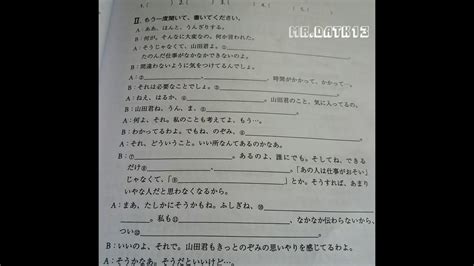 1.( ) 2.( ) 3.( ) 4.( ) 5.( )
MR.DATK13
II. もう一度聞いて、書いてください。
A：ああ、ほんと、うんざりする。
B：何が。そんなに大変なの。何か言われた。
A：そうじゃなくて、山田君よ。
たのんだ仕事がなかなかできないのよ。
B：間違わないように気をつけてるんでしょ。
A：① 、時間がかかって、かかって…。
B：それは必要なことでしょ。②
A：ねえ、はるか、④ 。山田君のこと、気に入ってるの。
B：山田君ね、うん、ま、⑤
A：何よ、それ。私のことも考えてよ、もう…。
B：わかってるわよ。でもね、のぞみ、⑥
A：それ、どういうこと。いい所なんてあるのかなあ。
B：⑦ 。あるのよ、誰にでも。そしてね、できる
だけ⑧ 。「あの人は仕事がおそい」
じゃなくて、「⑨ 」とか。そうすれば、あまり
いやな人だと思わなくなるから。
A：まあ、たしかにそうかもね。ふしぎね、⑩
。私も⑪ 、なかなか伝わらないから、
つい⑫
B：いいのよ、それで。山田君もきっとのぞみの思いやりを感じてるわよ。
A：そうかなあ。そうだといいけど…。